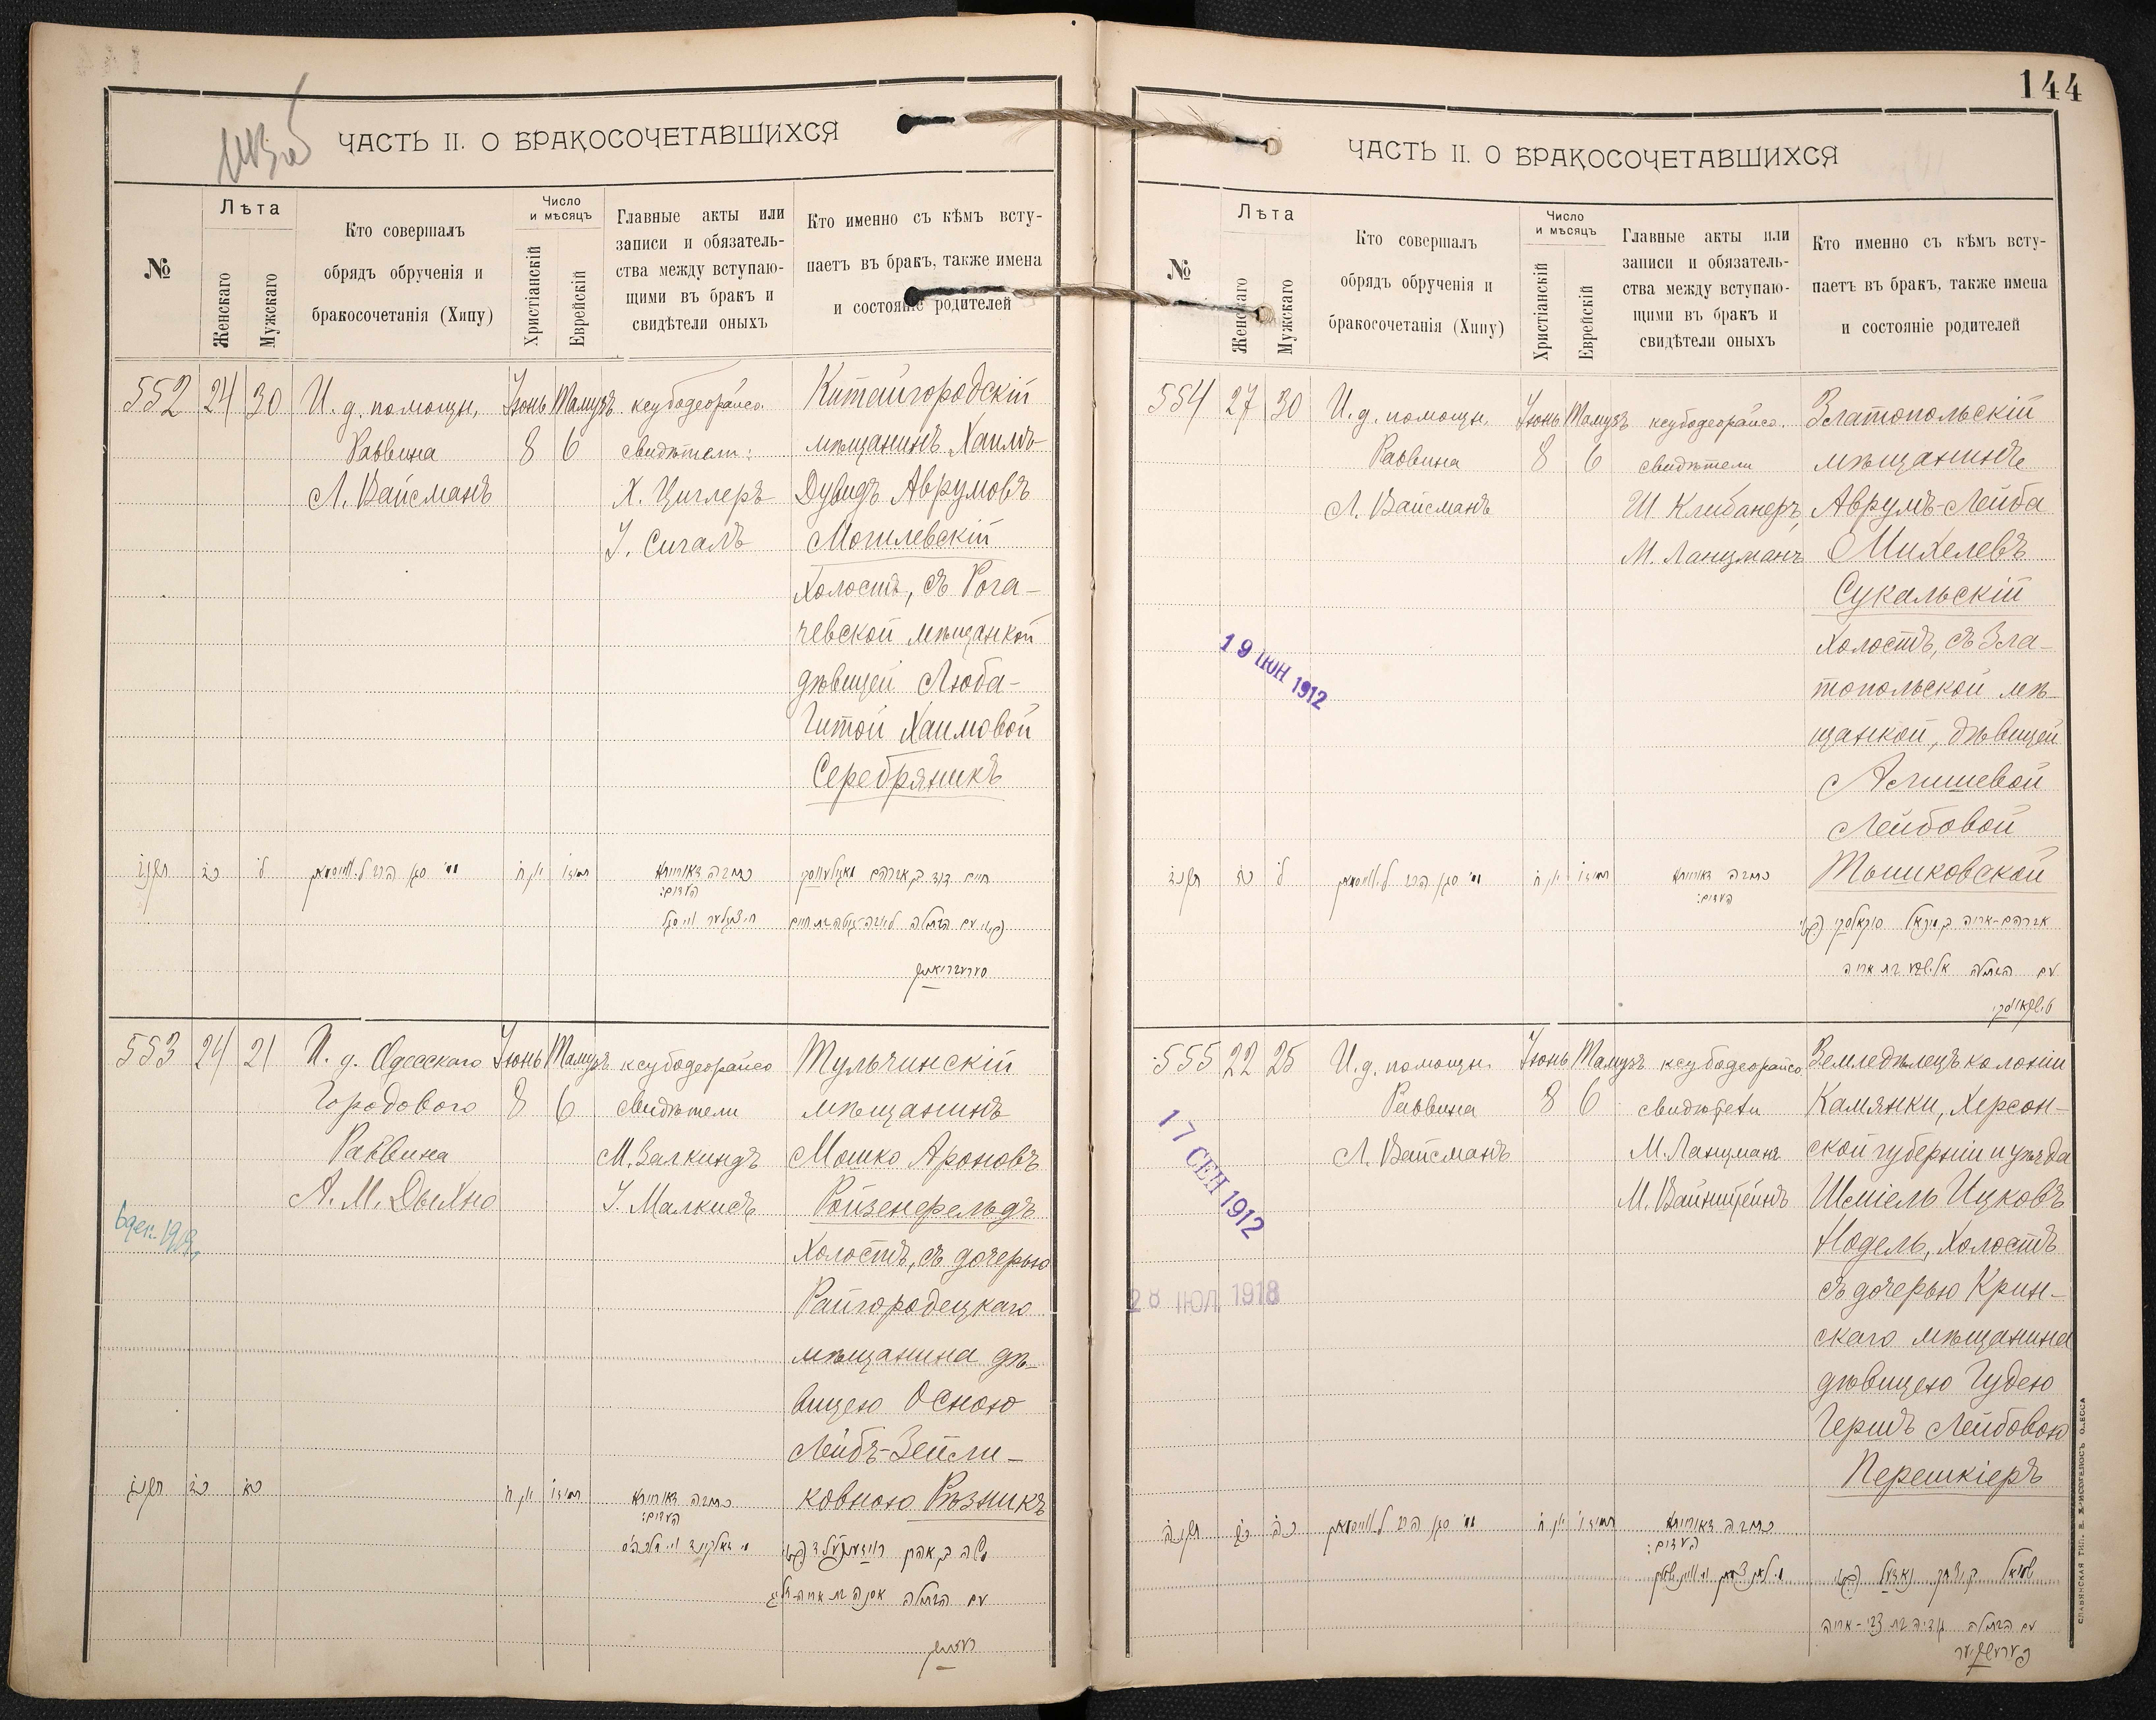 ЧАСТЬ II. О БРАКОСОЧЕТАВШИХСЯ
№
Лѣта
Женскаго
Мужскаго
Кто совершалъ
обрядъ обрученія и
бракосочетанія (Хипу)
Число
и мѣсяцъ
Христіанскій
Еврейскій
Главные акты или
записи и обязатель-
ства между вступаю-
щими въ бракъ и
свидѣтели оныхъ
Кто именно съ кѣмъ всту-
паетъ въ бракъ, также имена
и состояніе родителей
552 24 30
И. д. помощн.
Раввина
Л. Вайсманъ
Іюнь 8
Тамузъ 6
ксубодеорайсо.
свидѣтели:
Х. Циглеръ
І. Сигалъ
Китайгородскій
мѣщанинъ Хаимъ-
Дувидъ Аврумовъ
Могилевскій
холостъ, съ Рога-
чевской мѣщанкой
дѣвицей Люба-
Гитой Хаимовой
Серебряникъ
כתובה דאורייתא
העדים:
חיים דוד בן אברהם
עם הבתולה
553 24 21
И. д. Одесскаго
Городового
Раввина
А. М. Дыхно
Іюнь 8
Тамузъ 6
ксубодеорайсо
свидѣтели
М. Залкиндъ
І. Малкисъ
Тульчинскій
мѣщанинъ
Мошко Ароновъ
Ройзенфельдъ
холостъ, съ дочерью
Райгородецкаго
мѣщанина дѣ-
вицею Осною
Лейбъ-Зейли-
ковною Рѣзникъ
כתובה דאורייתא
העדים:
משה בן אהרן
עם הבתולה
144
ЧАСТЬ II. О БРАКОСОЧЕТАВШИХСЯ
№
Лѣта
Женскаго
Мужскаго
Кто совершалъ
обрядъ обрученія и
бракосочетанія (Хипу)
Число
и мѣсяцъ
Христіанскій
Еврейскій
Главные акты или
записи и обязатель-
ства между вступаю-
щими въ бракъ и
свидѣтели оныхъ
Кто именно съ кѣмъ всту-
паетъ въ бракъ, также имена
и состояніе родителей
554 27 30
И. д. помощн.
Раввина
Л. Вайсманъ
Іюнь 8
Тамузъ 6
ксубодеорайсо.
свидѣтели
Ш Клибанеръ,
М. Ланцманъ
Златопольскій
мѣщанинъ
Аврумъ-Лейба
Михелевъ
Сукальскій
холостъ, съ Зла-
топольской мѣ-
щанкой, дѣвицей
Лейбовой
Тышковской
19 ІЮН 1912
כתובה דאורייתא
העדים:
אברהם-אריה
עם הבתולה
555 22 25
И. д. помощн.
Раввина
Л. Вайсманъ
Іюнь 8
Тамузъ 6
ксубодеорайсо
свидѣтели
М. Ланцманъ
М. Вайнштейнъ
Земледѣлецъ колоніи
Камянки, Херсон-
ской губерніи и уѣзда
Шміель Ицковъ
Нодель, холостъ
съ дочерью Крин-
скаго мѣщанина
дѣвицею Гудею
Гершъ Лейбовою
Перешкіеръ
17 СЕН 1912
28 ІЮЛ 1918
כתובה דאורייתא
העדים:
שמואל בן יצחק
עם הבתולה